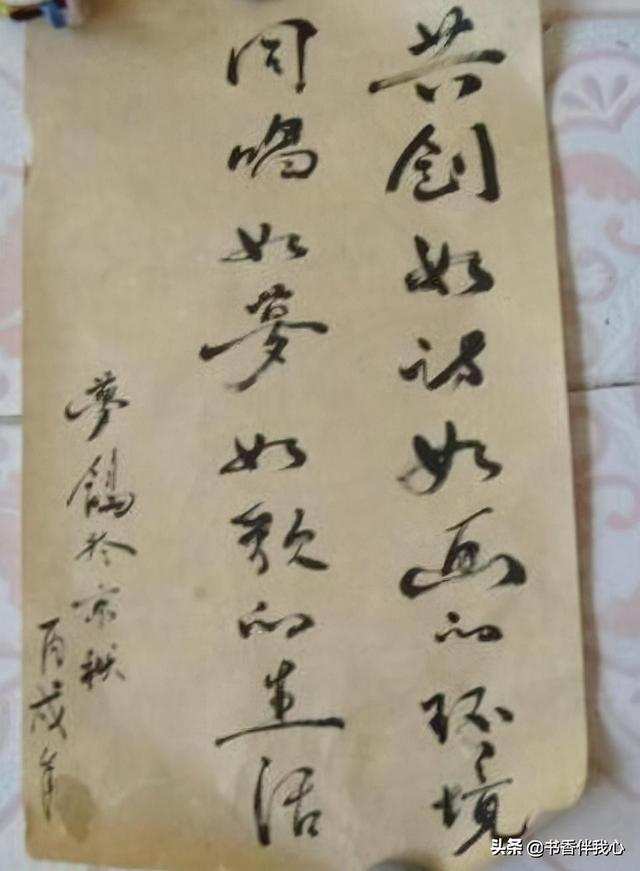 共創如诗如画的环境
同唱如夢如歌的生活
夢鴿於京秋
丙戌年
头条 @书香伴我心